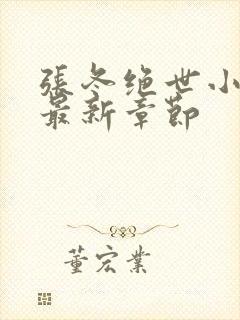 張冬绝世小
最新章節
董宏業